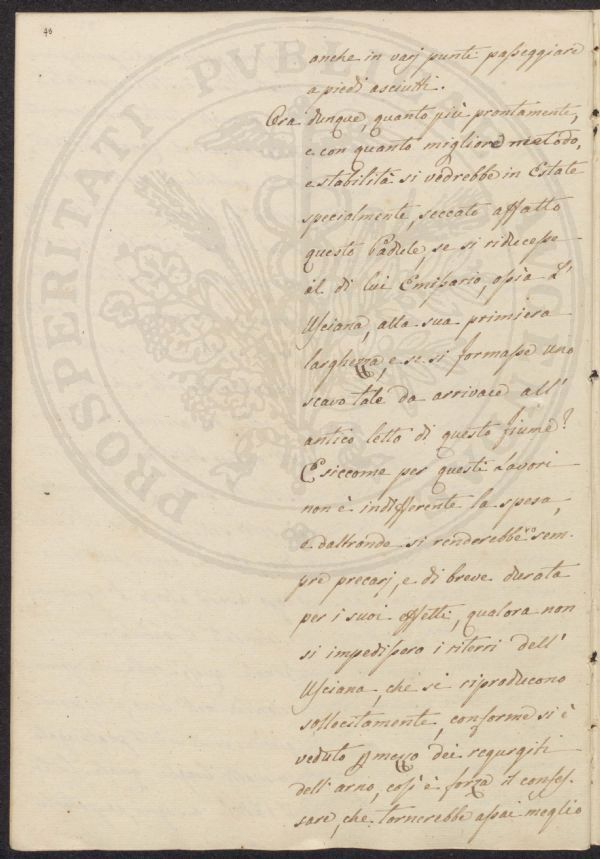 40
anche in varj punti passeggiare
a piedi asciutti.
Ora dunque, quanto più prontamente,
e con quanto migliore metodo,
e stabilità si vedrebbe in Estate
specialmente, seccato affatto
questo Padule, se si riducesse
al di lui Emissario, ossia L'
Usciana, alla sua primiera
larghezza, e se si formasse uno
scavo tale da arrivare all'
antico letto di questo fiume?
E siccome per questi Lavori
non è indifferente la spesa,
e daltronde si renderebbero sem-
pre precarj, e di breve durata
per i suoi effetti, qualora non
si impedissero i riterri dell'
Usciana, che si riproducono
sollecitamente, conforme si è
veduto p mezzo dei regurgiti
dell'arno, così è forza il confes-
sare, che tornerebbe assai meglio
PROSPERITATI PVBL